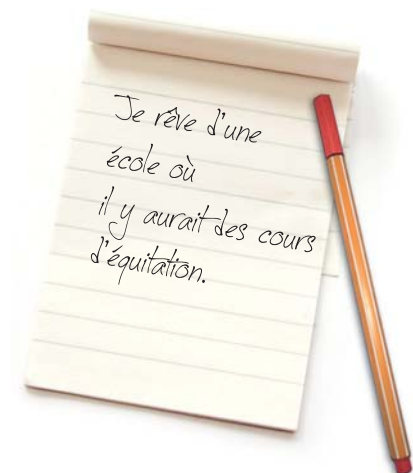 Je rêve d'une
école où
il y aurait des cours
d'équitation.